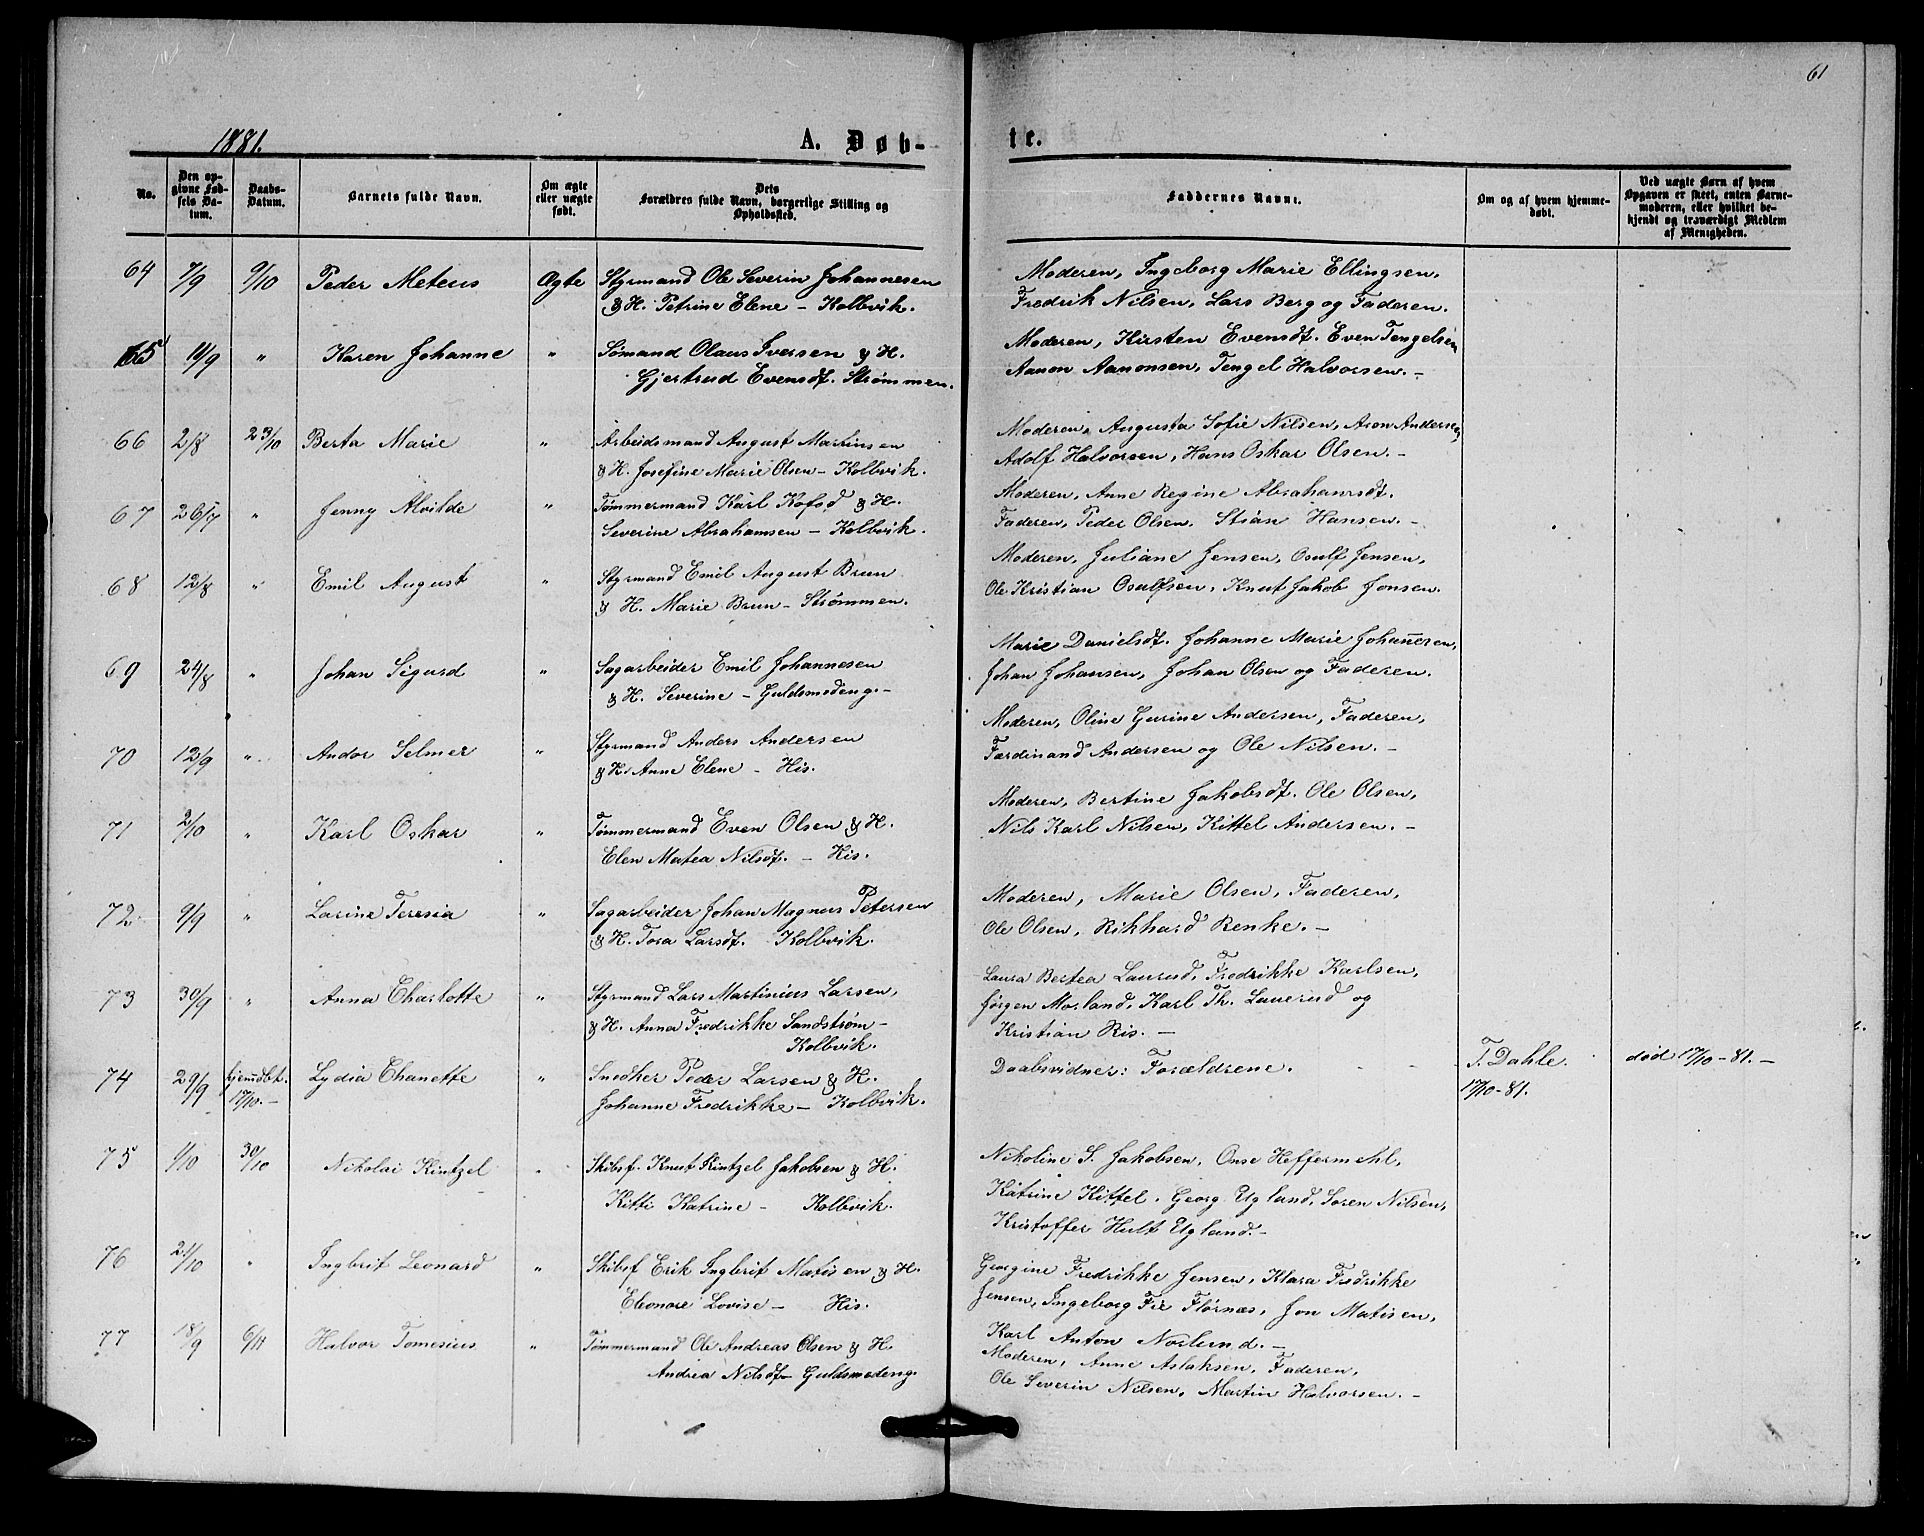 61
1881.
A. Døb-
te.
No.
Den op-
givne Fød-
sels Da-
tum.
Daabs-
Datum.
Barnets fulde Navn.
Om ægte
eller uægte
født.
Dets
Forældres fulde Navn, borgerlige Stilling og
Opholdssted.
Faddernes Navne.
Om og af hvem hjemme-
døbt.
Ved uægte Børn af hvem
Opgaven er skeet, enten Barne-
moderen, eller hvilket be-
kjendt og troværdigt Medlem
af Menigheden.
64 7/9 9/10 Peder Meteus Ægte Styrmand Ole Severin Johannesen
& H. Petrine Elene – Kolbvik.
Moderen, Ingeborg Marie Ellingsen,
Fredrik Nilsen, Lars Berg og Faderen.
65 11/9 " Karen Johanne " Sømand Olaus Iversen & H.
Gjertrud Evensdt. Strømmen.
Moderen, Kirsten Evensdt. Even Tengelsen
Aanon Aanonsen, Tengel Halvorsen. –
66 2/8 23/10 Berta Marie " Arbeidsmand August Martinsen
& H. Josefine Marie Olsen – Kolbvik.
Moderen, Augusta Sofie Nilsen, Aron Andersen,
Adolf Halvorsen, Hans Oskar Olsen. –
67 26/7 " Jenny Alvilde " Tømmermand Karl Kofod & H.
Severine Abrahamsen – Kolbvik.
Moderen, Anne Regine Abrahamsdt.
Faderen, Peder Olsen. Stian Hansen. –
68 12/8 " Emil August " Styrmand Emil August Brun
& H. Marie Brun – Strømmen.
Moderen, Juliane Jensen, Osulf Jensen,
Ole Kristian Osulfsen, Knut Jakob Jonsen.
69 24/8 " Johan Sigurd " Sagarbeider Emil Johannesen
& H. Severine – Guldsmedeng. –
Marie Danielsdt. Johanne Marie Johannesen,
Johan Johansen, Johan Olsen og Faderen.
70 12/9 " Andor Selmer " Styrmand Anders Andersen
& H. Anne Elene – His.
Moderen, Oline Gurine Andersen, Faderen,
Ferdinand Andersen og Ole Nilsen. –
71 2/10 " Karl Oskar " Tømmermand Even Olsen & H.
Elen Matea Nilsdt. – His.
Moderen, Bertine Jakobsdt. Ole Olsen,
Nils Karl Nilsen, Kittel Andersen. –
72 9/9 " Larine Teresia " Sagarbeider Johan Magnus Petersen
& H. Tora Larsdt. Kolbvik.
Moderen, Marie Olsen, Faderen,
Ole Olsen, Rikhard Renke. –
73 30/9 " Anna Charlotte " Styrmand Lars Martinius Larsen,
& H. Anna Fredrikke Sandstrøm –
Kolbvik.
Laura Bertea Laurud, Fredrikke Karlsen,
Jørgen Morland, Karl Th. Lauerud og
Kristian Ris. –
74 29/9 hjemdbt.
17/10. –
Lydia Chanette " Snedker Peder Larsen & H.
Johanne Fredrikke – Kolbvik.
Daabsvidner: Forældrene.
T. Dahle.
17/10-81.
død 17/10-81. –
75 1/10 30/10 Nikolai Kintzel " Skibsf. Knut Kintzel Jakobsen & H.
Kitti Katrine – Kolbvik.
Nikoline S. Jakobsen, Onse Heffermehl,
Katrine Kittel. Georg Ugland, Soren Nilsen,
Kristoffer Hult Ugland. –
76 21/10 " Ingbrit Leonard " Skibsf Erik Ingbrit Matisen & H.
Eleonore Lovise – His.
Georgine Fredrikke Jensen, Klara Fredrikke
Jensen, Ingeborg Fie Flørnæs, Jon Matisen,
Karl Anton Norlund. –
77 18/9 6/11 Halvor Tomesius " Tømmermand Ole Andreas Olsen & H.
Andrea Nilsdt – Guldsmedeng.
Moderen, Anne Aslaksen, Faderen,
Ole Severin Nilsen, Martin Halvorsen. –